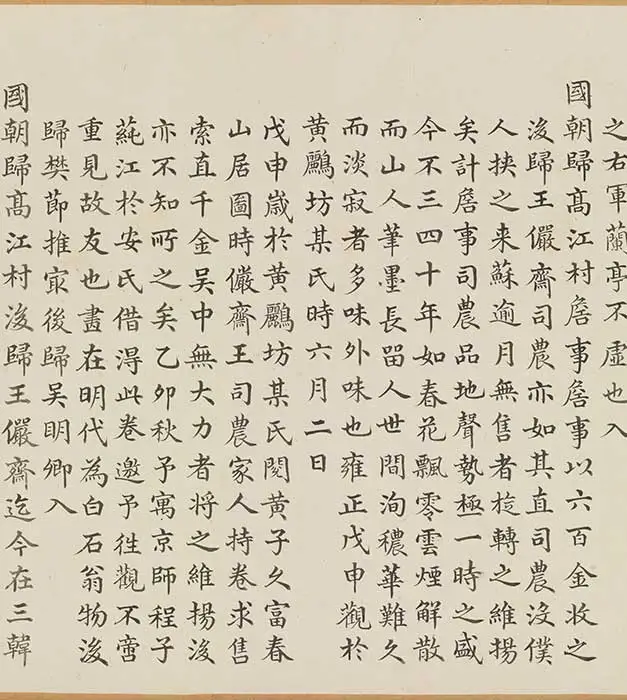 之右軍蘭亭不虛也入
國朝歸髙江村詹事詹事以六百金收之
後歸王儼齋司農亦如其直司農沒僕
人挾之来蘇逾月無售者旋轉之維揚
矣計詹事司農品地聲勢極一時之盛
今不三四十年如春花飄零雲煙解散
而山人筆墨長留人世間洵穠華難久
而淡寂者多味外味也雍正戊申觀於
黄鸝坊某氏時六月二日
戊申歳於黄鸝坊某氏閱黄子久富春
山居圖時儼齋王司農家人持卷求售
索直千金吳中無大力者将之維揚後
亦不知所之矣乙卯秋予寓京師程子
蒓江於安氏借得此卷邀予往觀不啻
重見故友也畫在明代為白石翁物後
歸樊節推冣後歸吳明卿入
國朝歸髙江村後歸王儼齋迄今在三韓